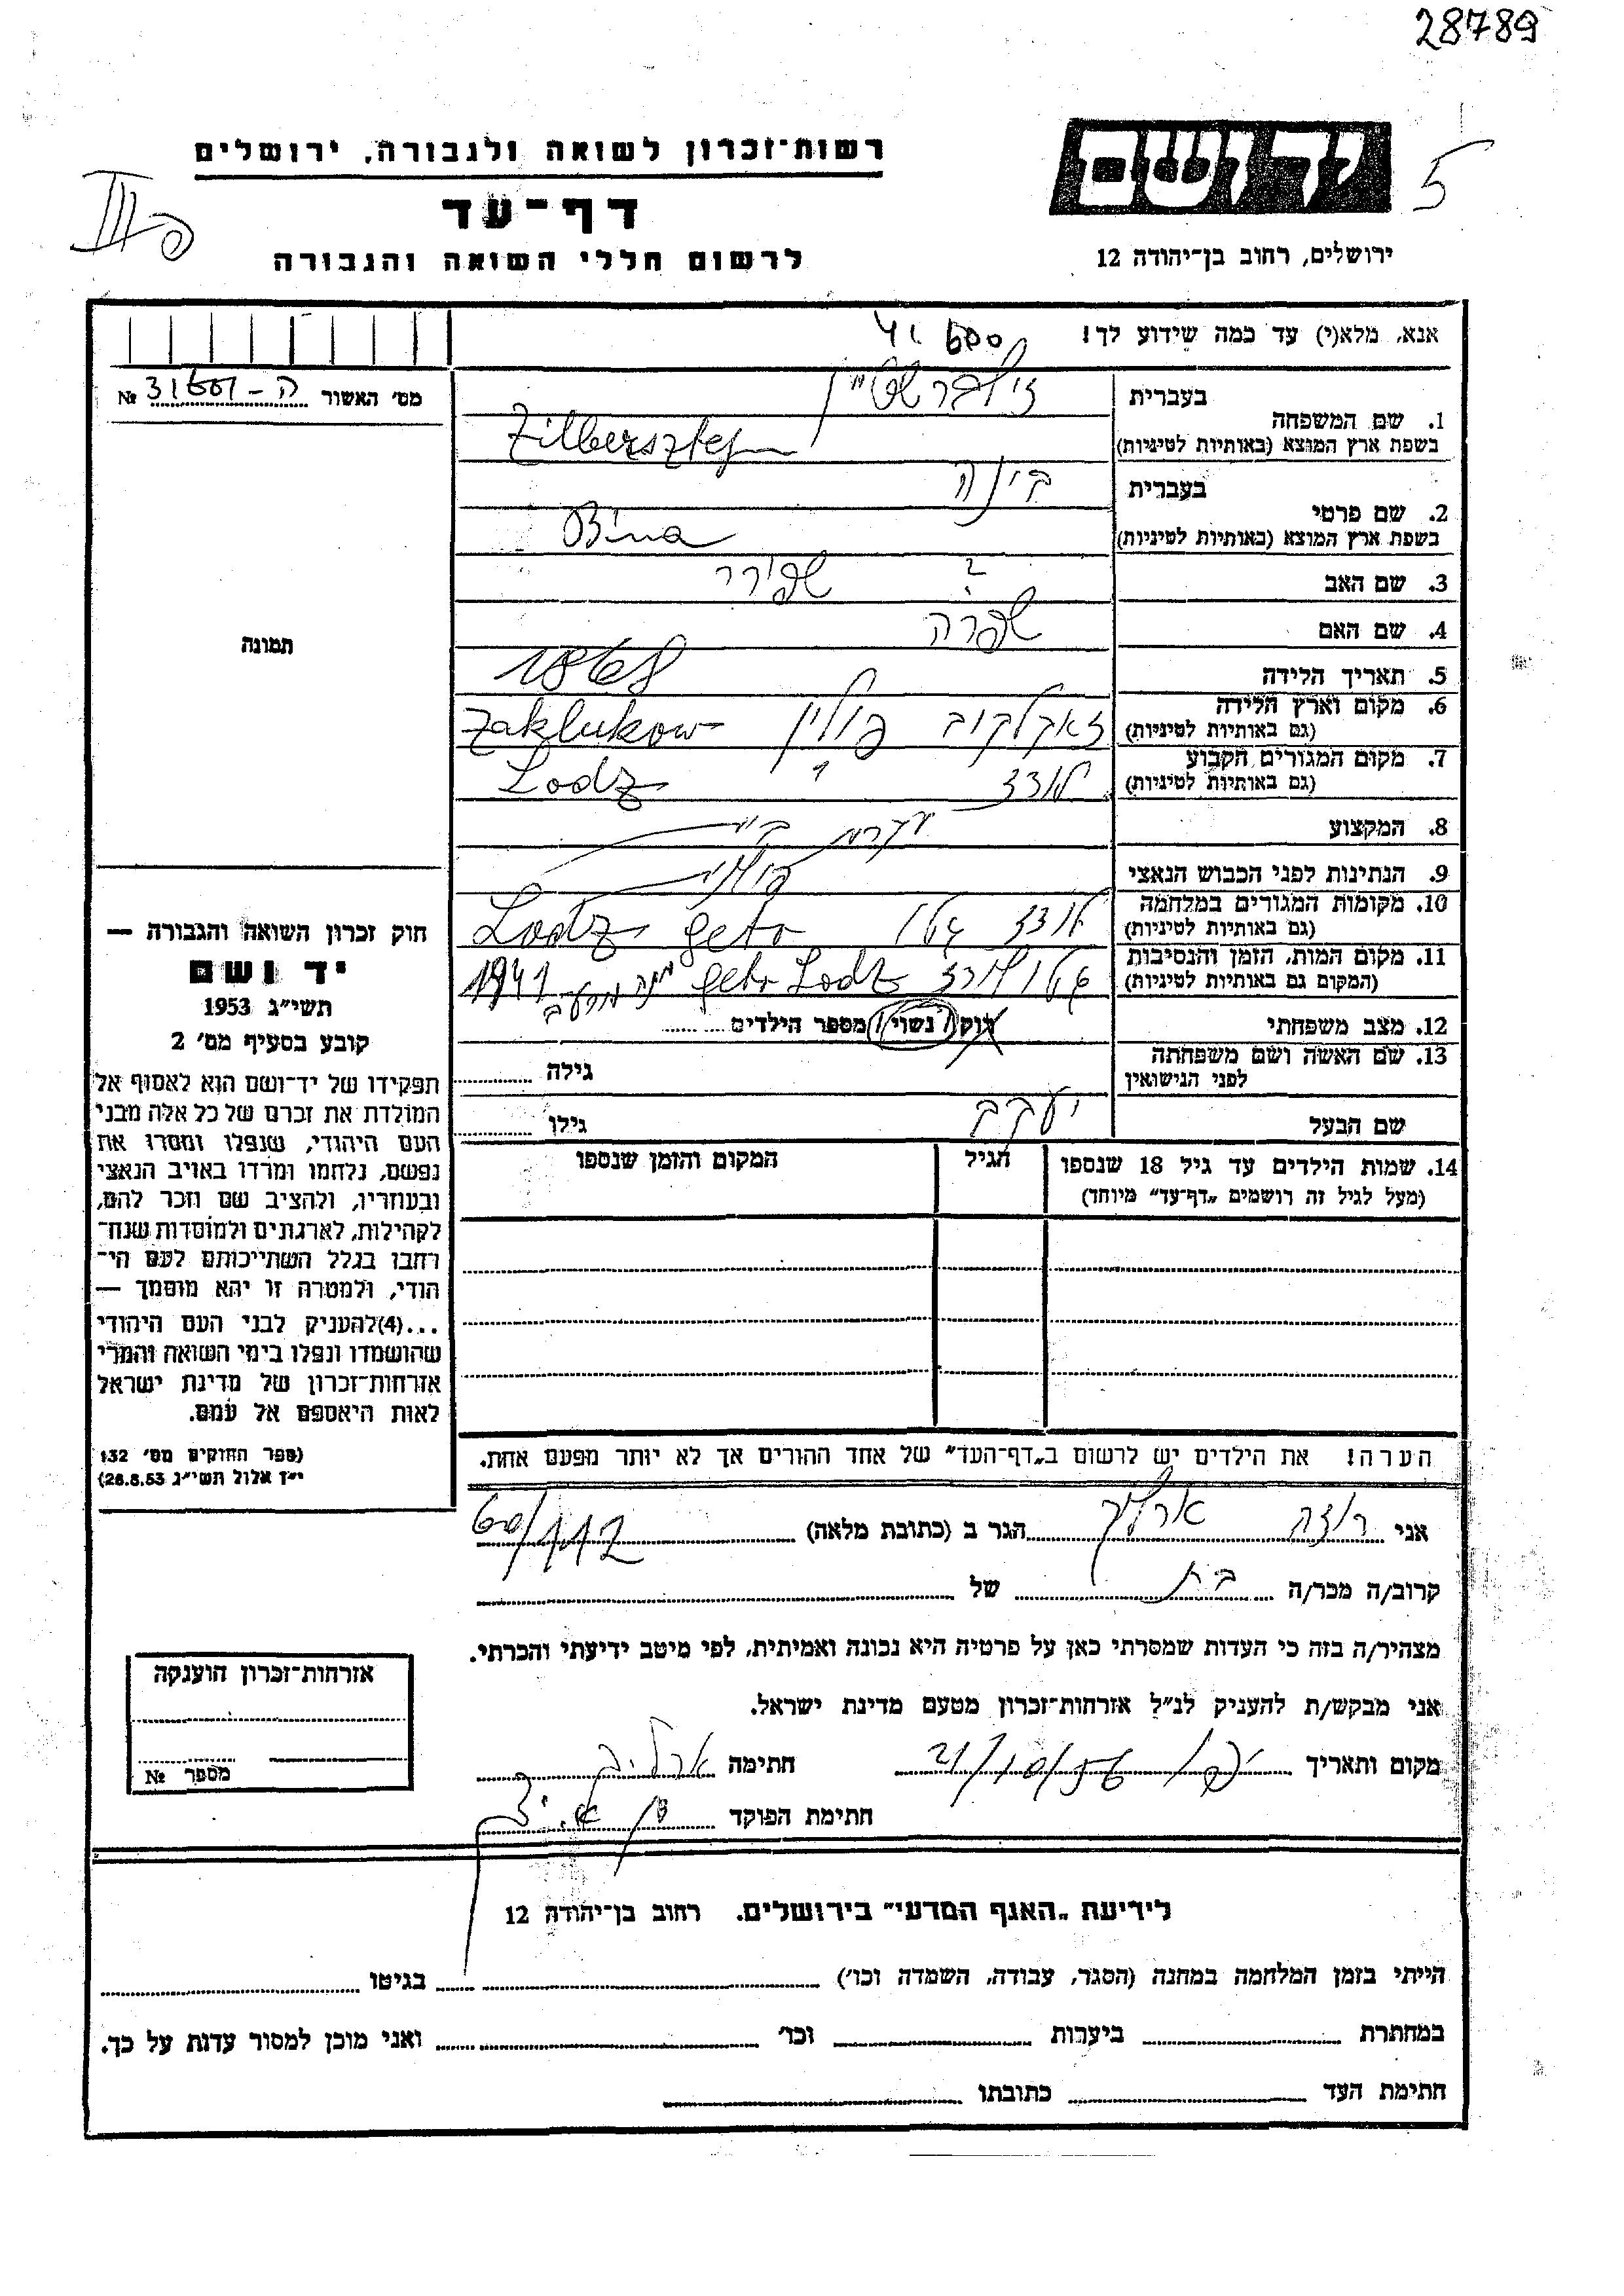 28789
רשות־זכרון לשואה ולגבורה, ירושלים
דף־עד
לרשום חללי השואה והגבורה
יד ושם
5
ירושלים, רחוב בן־יהודה 12
אנא, מלא(י) עד כמה שידוע לך!
מס׳ האשור № ה-
בעברית זילברשטיין
1. שם המשפחה
בשפת ארץ המוצא (באותיות לטיניות) Zilbersztejn
בעברית בינה
2. שם פרטי
בשפת ארץ המוצא (באותיות לטיניות) Bina
3. שם האב ? שפירר
4. שם האם שפרה
5. תאריך הלידה 1868
6. מקום וארץ הלידה
(גם באותיות לטיניות) זאקלקוב פולין Zaklukow
7. מקום המגורים הקבוע
(גם באותיות לטיניות) לודז Lodz
8. המקצוע עקרת בית
9. הנתינות לפני הכבוש הנאצי פולני
10. מקומות המגורים במלחמה
(גם באותיות לטיניות) לודז גטו Lodz geto
11. מקום המות, הזמן והנסיבות
(המקום גם באותיות לטיניות) גטו לודז geto Lodz מתה מרעב 1941
12. מצב משפחתי רוק / נשוי / מספר הילדים
13. שם האשה ושם משפחתה
לפני הנישואין גילה
שם הבעל יעקב גילו
14. שמות הילדים עד גיל 18 שנספו הגיל המקום והזמן שנספו
(מעל לגיל זה רושמים „דף־עד״ מיוחד)
הערה! את הילדים יש לרשום ב„דף־העד״ של אחד ההורים אך לא יותר מפעם אחת.
תמונה
חוק זכרון השואה והגבורה —
יד ושם
תשי״ג 1953
קובע בסעיף מס׳ 2
תפקידו של יד־ושם הוא לאסוף אל
המולדת את זכרם של כל אלה מבני
העם היהודי, שנפלו ומסרו את
נפשם, נלחמו ומרדו באויב הנאצי
ובעוזריו, ולהציב שם וזכר להם,
לקהילות, לארגונים ולמוסדות שנח־
רחבו בגלל השתייכותם לעם הי־
הודי, ולמטרה זו יהא מוסמך —
...(4)להעניק לבני העם היהודי
שהושמדו ונפלו בימי השואה והמרי
אזרחות־זכרון של מדינת ישראל
לאות היאספם אל עמם.
(ספר החוקים מס׳ 132
י״ז אלול תשי״ג 28.8.53)
אני רוזה ארליך הגר ב (כתובת מלאה)
קרוב/ה מכר/ה בת של
מצהיר/ה בזה כי העדות שמסרתי כאן על פרטיה היא נכונה ואמיתית, לפי מיטב ידיעתי והכרתי.
אני מבקש/ת להעניק לנ״ל אזרחות־זכרון מטעם מדינת ישראל.
מקום ותאריך 21/10/56 חתימה ארליך
חתימת הפוקד
אזרחות־זכרון הוענקה
מספר №
לידיעת „האגף המדעי״ בירושלים. רחוב בן־יהודה 12
הייתי בזמן המלחמה במחנה (הסגר, עבודה, השמדה וכו׳) בגיטו
במחתרת ביערות וכו׳ ואני מוכן למסור עדות על כך.
חתימת העד כתובתו